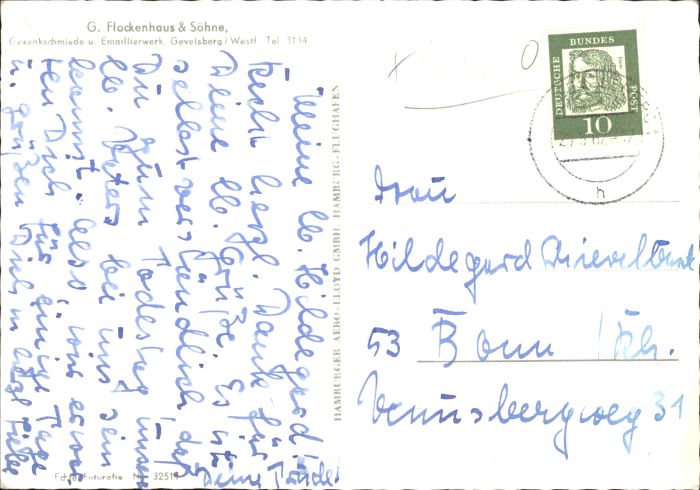 G. Flockenhaus & Söhne,
Gesenkschmiede u. Emaillierwerk, Gevelsberg/Westf Tel 3134
Meine lb. Hildegard!
Recht herzl. Dank für
Deine lb. Grüße. Es ist
selbstverständlich, daß
Du zum Todestag unseres
lb. Vaters bei uns sein
kannst. Also wir erwar
ten Dich für einige Tage
u. grüßen Dich in
Deine
HAMBURGER AERO-LLOYD GMBH HAMBURG-FLUGHAFEN
Echte Fotografie Nr. 3251
DEUTSCHE BUNDESPOST
10
h
Frau
Hildegard
53 Bonn /Rh.
Venusbergweg 31